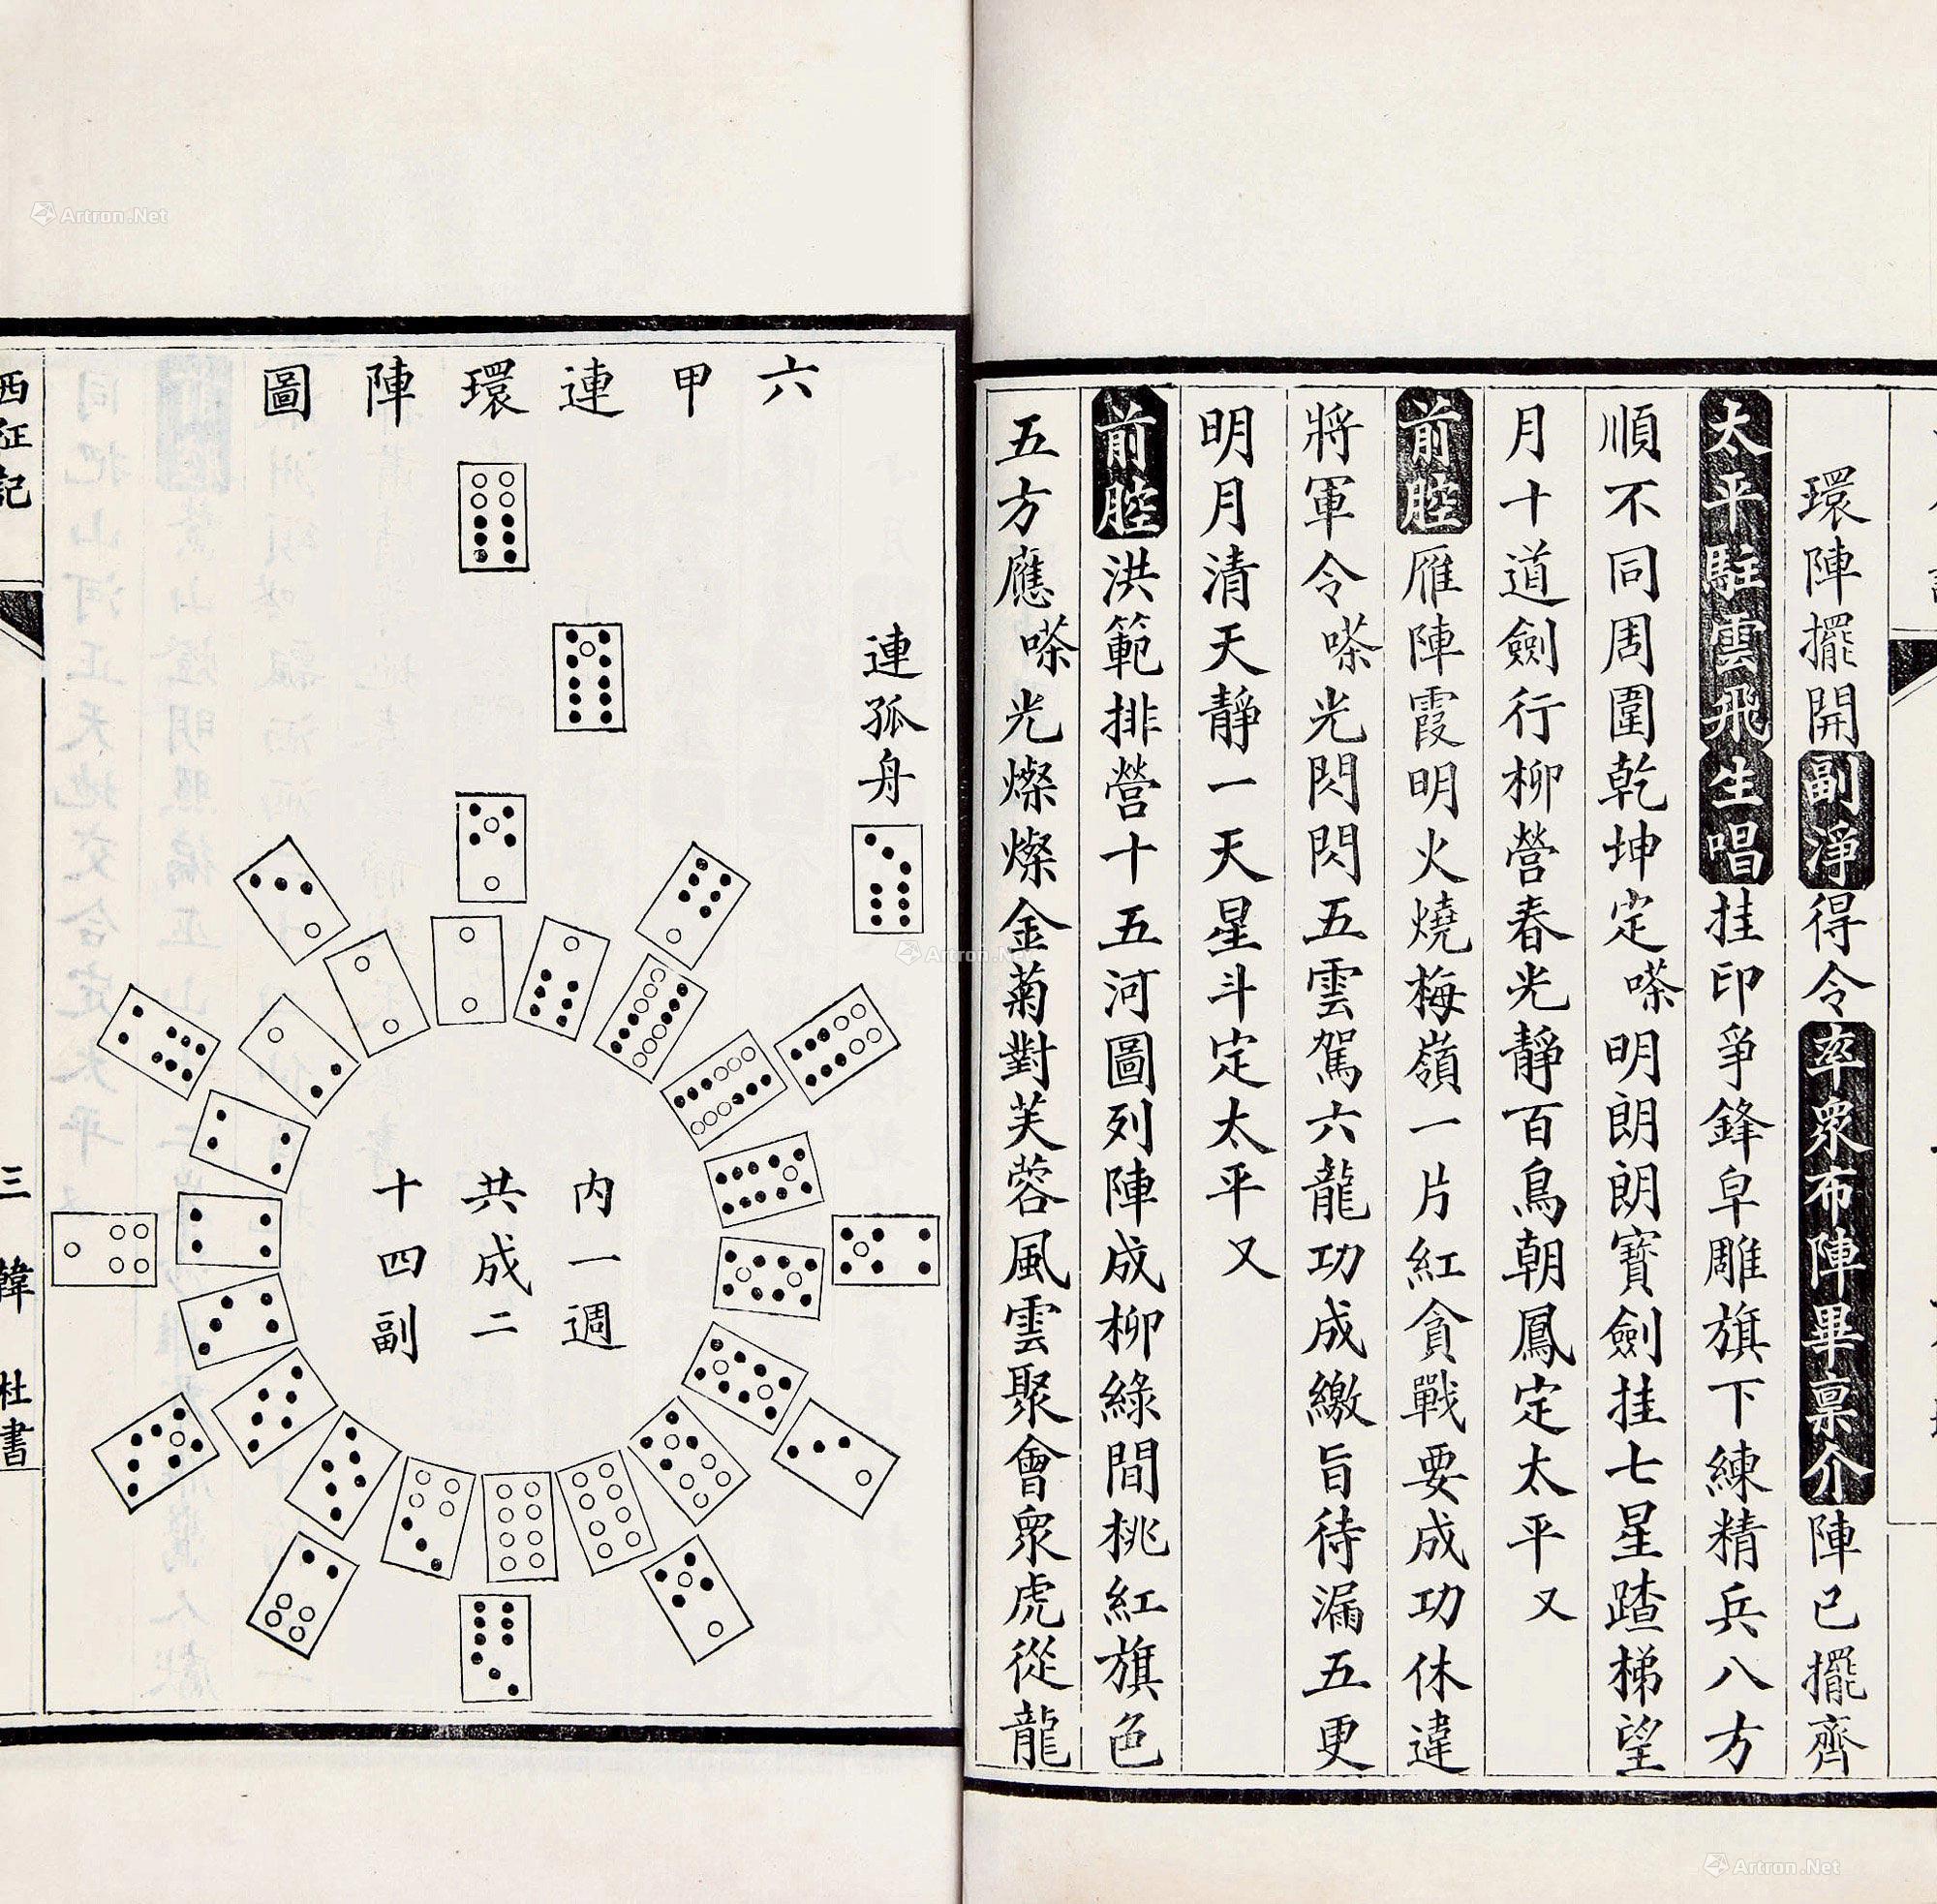 環陣擺開副淨得令率眾布陣畢稟介陣已擺齊
太平駐雲飛生唱挂印爭鋒皁雕旗下練精兵八方
順不同周圍乾坤定嗏明朗朗寶劍挂七星踏梯望
月十道劍行柳營春光靜百鳥朝鳳定太平又
前腔雁陣霞明火燒梅嶺一片紅貪戰要成功休違
將軍令嗏光閃閃五雲駕六龍功成繳旨待漏五更
明月清天靜一天星斗定太平又
前腔洪範排營十五河圖列陣成柳綠間桃紅旗色
五方應嗏光燦燦金菊對芙蓉風雲聚會眾虎從龍
六甲連環陣圖
連孤舟
內一週
共成二
十四副
西征記
三
韓
杜書
Artron.Net
Artron.Net
Artron.Net